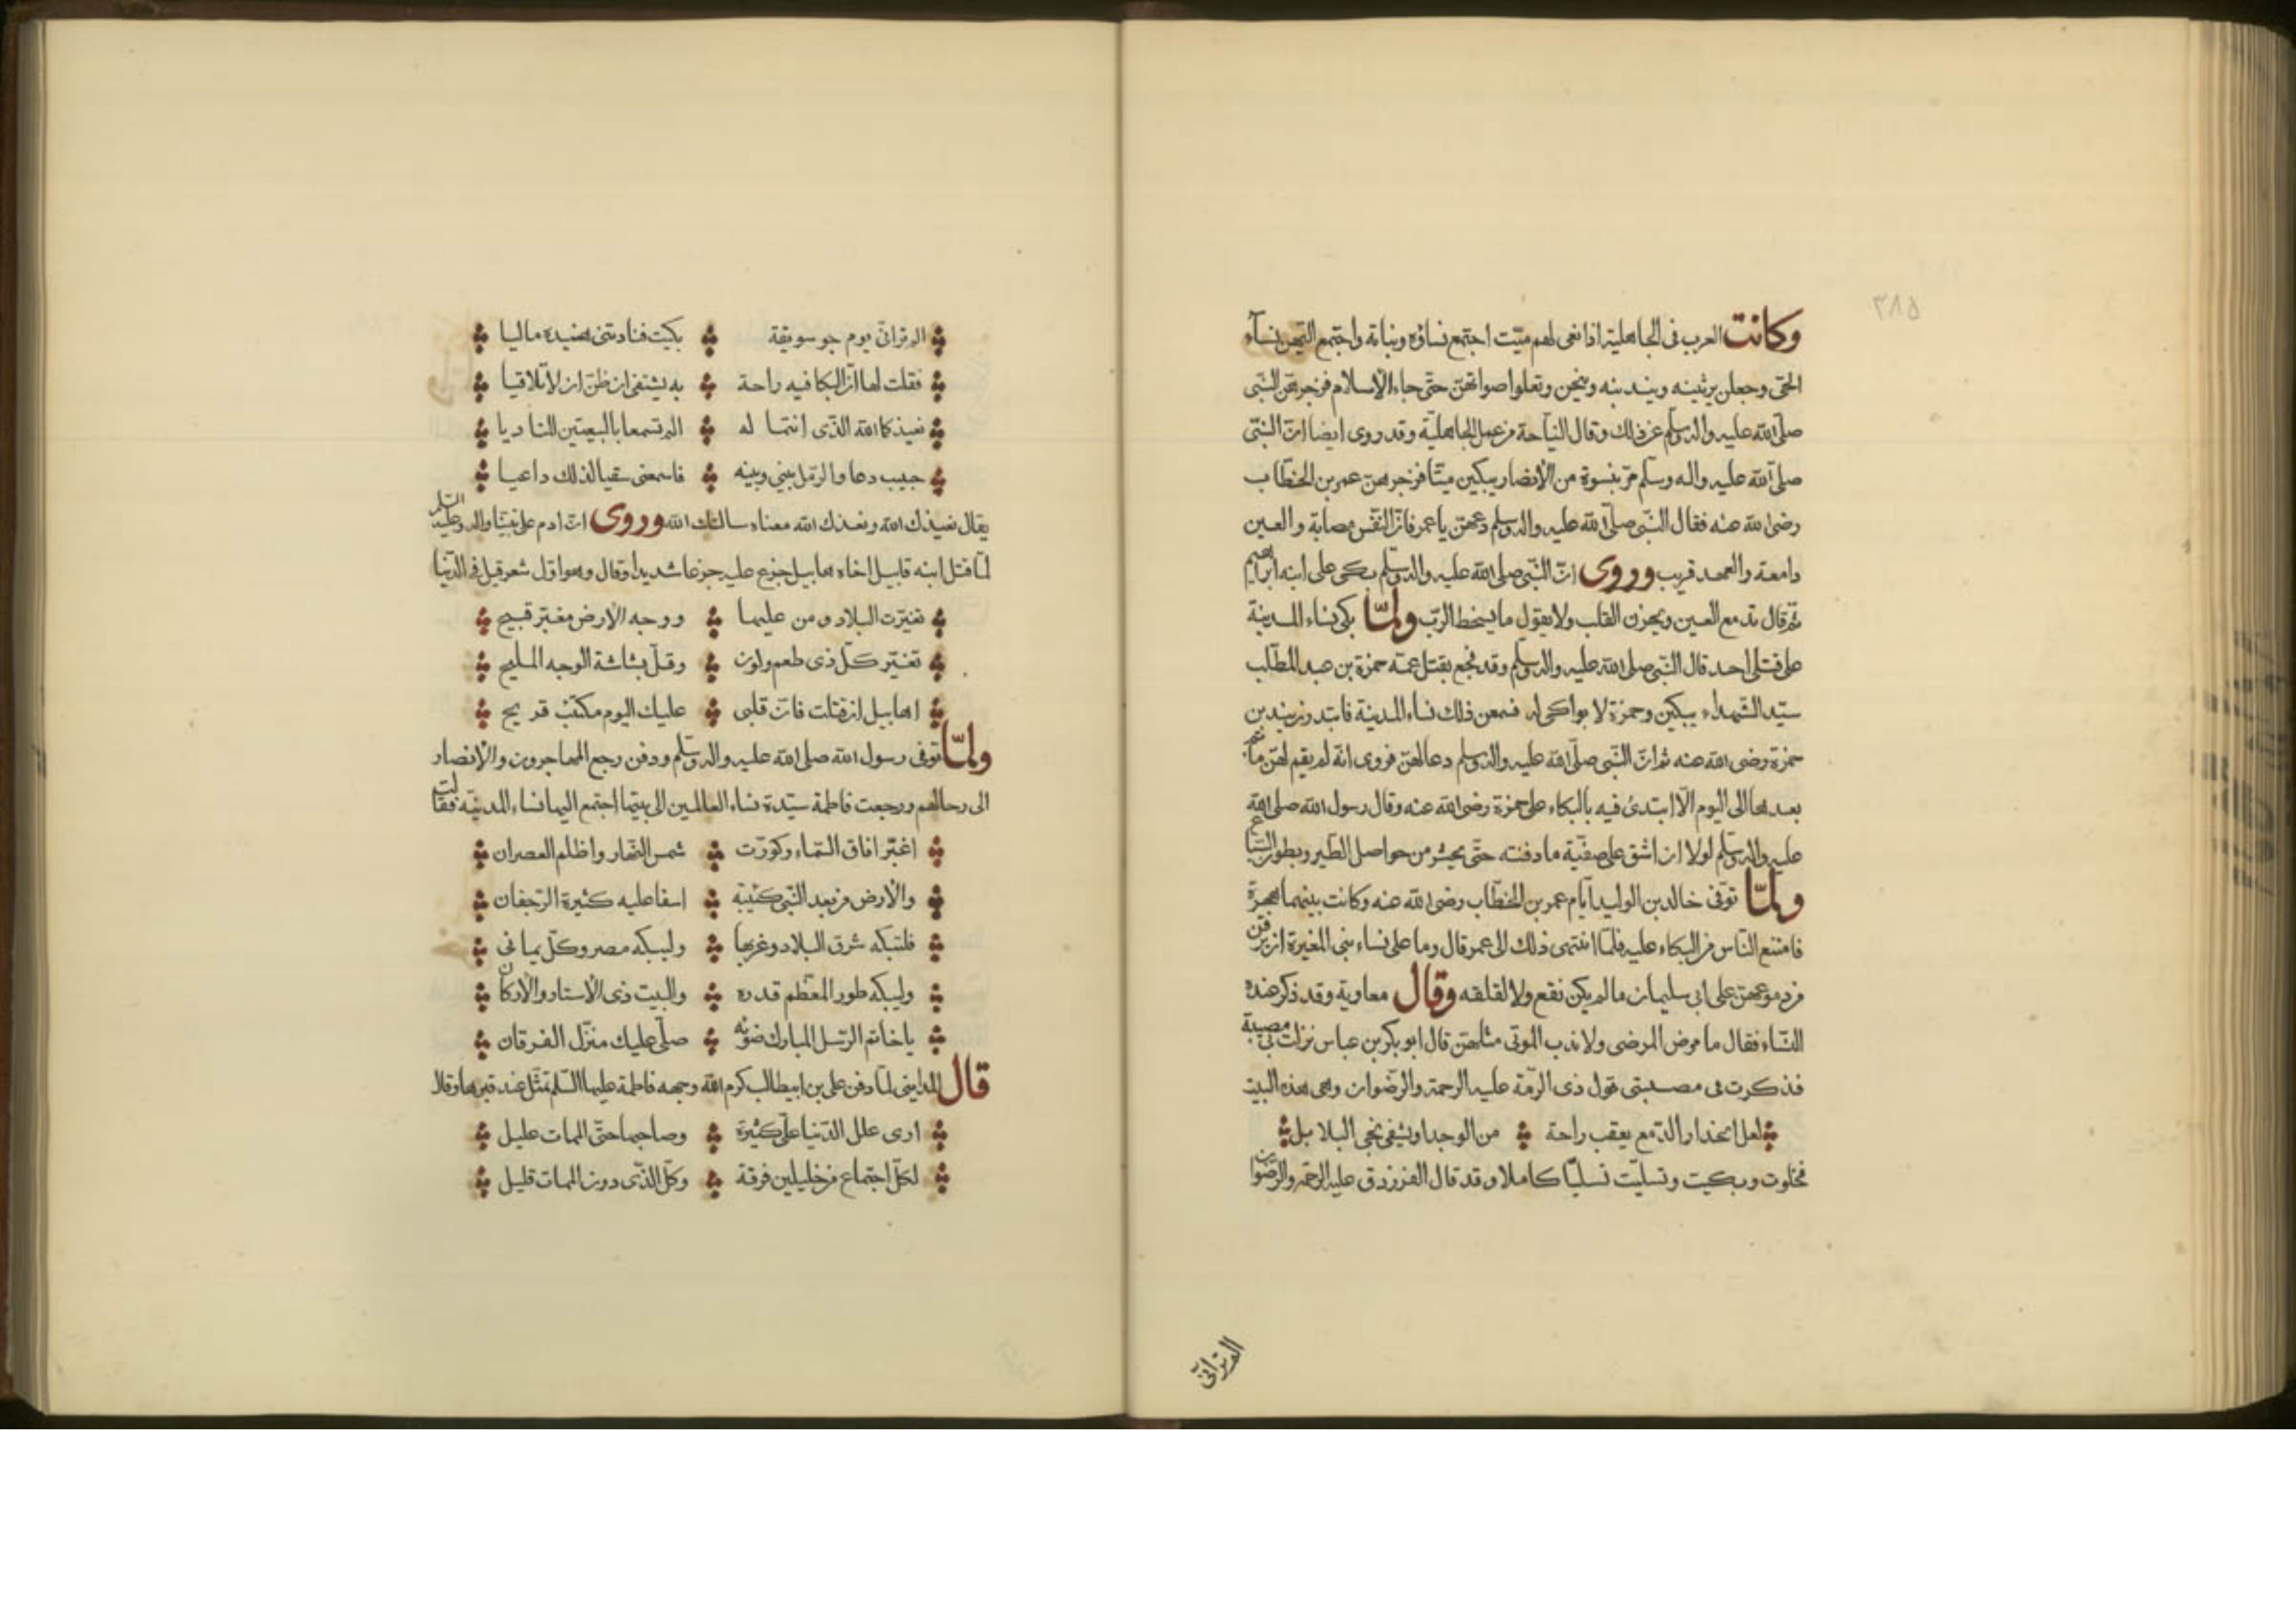 ٣٨٥
وكانت العرب فى الجاهلية اذا نعى لهم ميّت اجتمع نساؤه وبناته واجتمع اليهن نسآء
الحىّ وجعلن يرثينه ويندبنه وينحن وتعلوا صواتهنّ حتّى جاء الاسلام فزجرهنّ النّبى
صلّى الله عليه واله وسلّم عن ذلك وقال النياحة من عمل الجاهليّة وقد روى ايضا انّ النّبىّ
صلّى الله عليه واله وسلّم مرّ بنسوة من الانصار يبكين ميّتا فزجرهنّ عمر بن الخطّاب
رضى الله عنه فقال النّبى صلّى الله عليه واله وسلم دعهنّ يا عمر فانّ النّفس مصابة والعين
دامعة والعهد قريب وروى انّ النّبى صلى الله عليه واله وسلّم بكى على ابنه ابراهيم
ثم قال تدمع العين ويحزن القلب ولا نقول ما يسخط الربّ ولمّا بكى نساء المدينة
على قتلى احد قال النّبى صلى الله عليه واله وسلّم وقد فجع بقتل عمّه حمزة بن عبد المطّلب
سيّد الشهداء يبكين وحمزة لا بواكى له فسمعن ذلك نساء المدينة فابتدرن يندبن
حمزة رضى الله عنه ثم انّ النّبى صلّى الله عليه واله وسلم دعا لهنّ فروى انّه لم يقم لهنّ مأتم
بعدها الى اليوم الّا ابتدئ فيه بالبكاء على حمزة رضى الله عنه وقال رسول الله صلى الله
عليه واله وسلّم لولا ان اشق على صفيّة ما دفنته حتّى يحشر من حواصل الطّير وبطون السّباع
ولمّا توفى خالد بن الوليد ايّام عمر بن الخطّاب رضى الله عنه وكانت بينهما هجرة
فامتنع النّاس من البكاء عليه فلمّا انتهى ذلك الى عمر قال وما على نساء بنى المغيرة ان يرقن
من دموعهنّ على ابى سليمان ما لم يكن نقع ولا لقلقه وقال معاوية وقد ذكر عنده
النّساء فقال ما مرض المرضى ولا ندب الموتى مثلهنّ قال ابو بكر بن عباس نزلت بى مصيبة
فذكرت فى مصيبتى قول ذى الرّمّة عليه الرحمة والرضوان وهى هذه البيت
لعل انحدار الدّمع يعقب راحة من الوجد او يشفى نجى البلابل
فخلوت وبكيت وتسليّت تسليّا كاملا وقد قال الفرزدق عليه الرحمة والرّضوان
الم ترانّى
الم ترانّى يوم جو سويقة بكيت فنادتنى هنيدة ماليا
فقلت لها انّ البكا فيه راحة به يشتفى ان ظنّ ان لا تلاقيا
نعيذكما الله الذّى انتما له الم تسمعا بالبيعتين المناديا
حبيب دعا والرّمل بينى وبينه فاسمعنى سقيا لذلك داعيا
يقال نعيذك الله ونعذك الله معناه سالتك الله وروى انّ ادم على نبيّنا واله وعليه السّلم
لمّا قتل ابنه قابيل اخاه هابيل جزع عليه جزعا شديدا وقال وهو اوّل شعر قيل فى الدّنيا
تغيّرت البلاد ومن عليها ووجه الارض مغبّر قبيح
تغيّر كلّ ذى طعم ولون وقلّ بشاشة الوجه المليح
اهابيل ان قتلت فانّ قلبى عليك اليوم مكتئب قريح
ولمّا توفى رسول الله صلى الله عليه واله وسلّم ودفن رجع المهاجرون والانصار
الى رحالهم ورجعت فاطمة سيّدة نساء العالمين الى بيتها اجتمع اليها نساء المدينه فقالت
اغبّر افاق السّماء وكوّرت شمس النّهار واظلم العصران
والارض من بعد النّبى كئيبة اسفا عليه كثيرة الرّجفان
فلتبكه شرق البلاد وغربها وليبكه مصر وكلّ يمانى
وليبكه طور المعّظم قدره والبيت ذى الاستار والاركان
يا خاتم الرّسل المبارك ضوئه صلّى عليك منزّل الفرقان
قال المداينى لمّا دفن على بن ابيطالب كرم الله وجهه فاطمة عليها السّلم تمثّل عند قبرها وقال
ارى علل الدّنيا علىّ كثيرة وصاحبها حتّى الممات عليل
لكلّ اجتماع من خليلين فرقة وكلّ الذّى دون الممات قليل